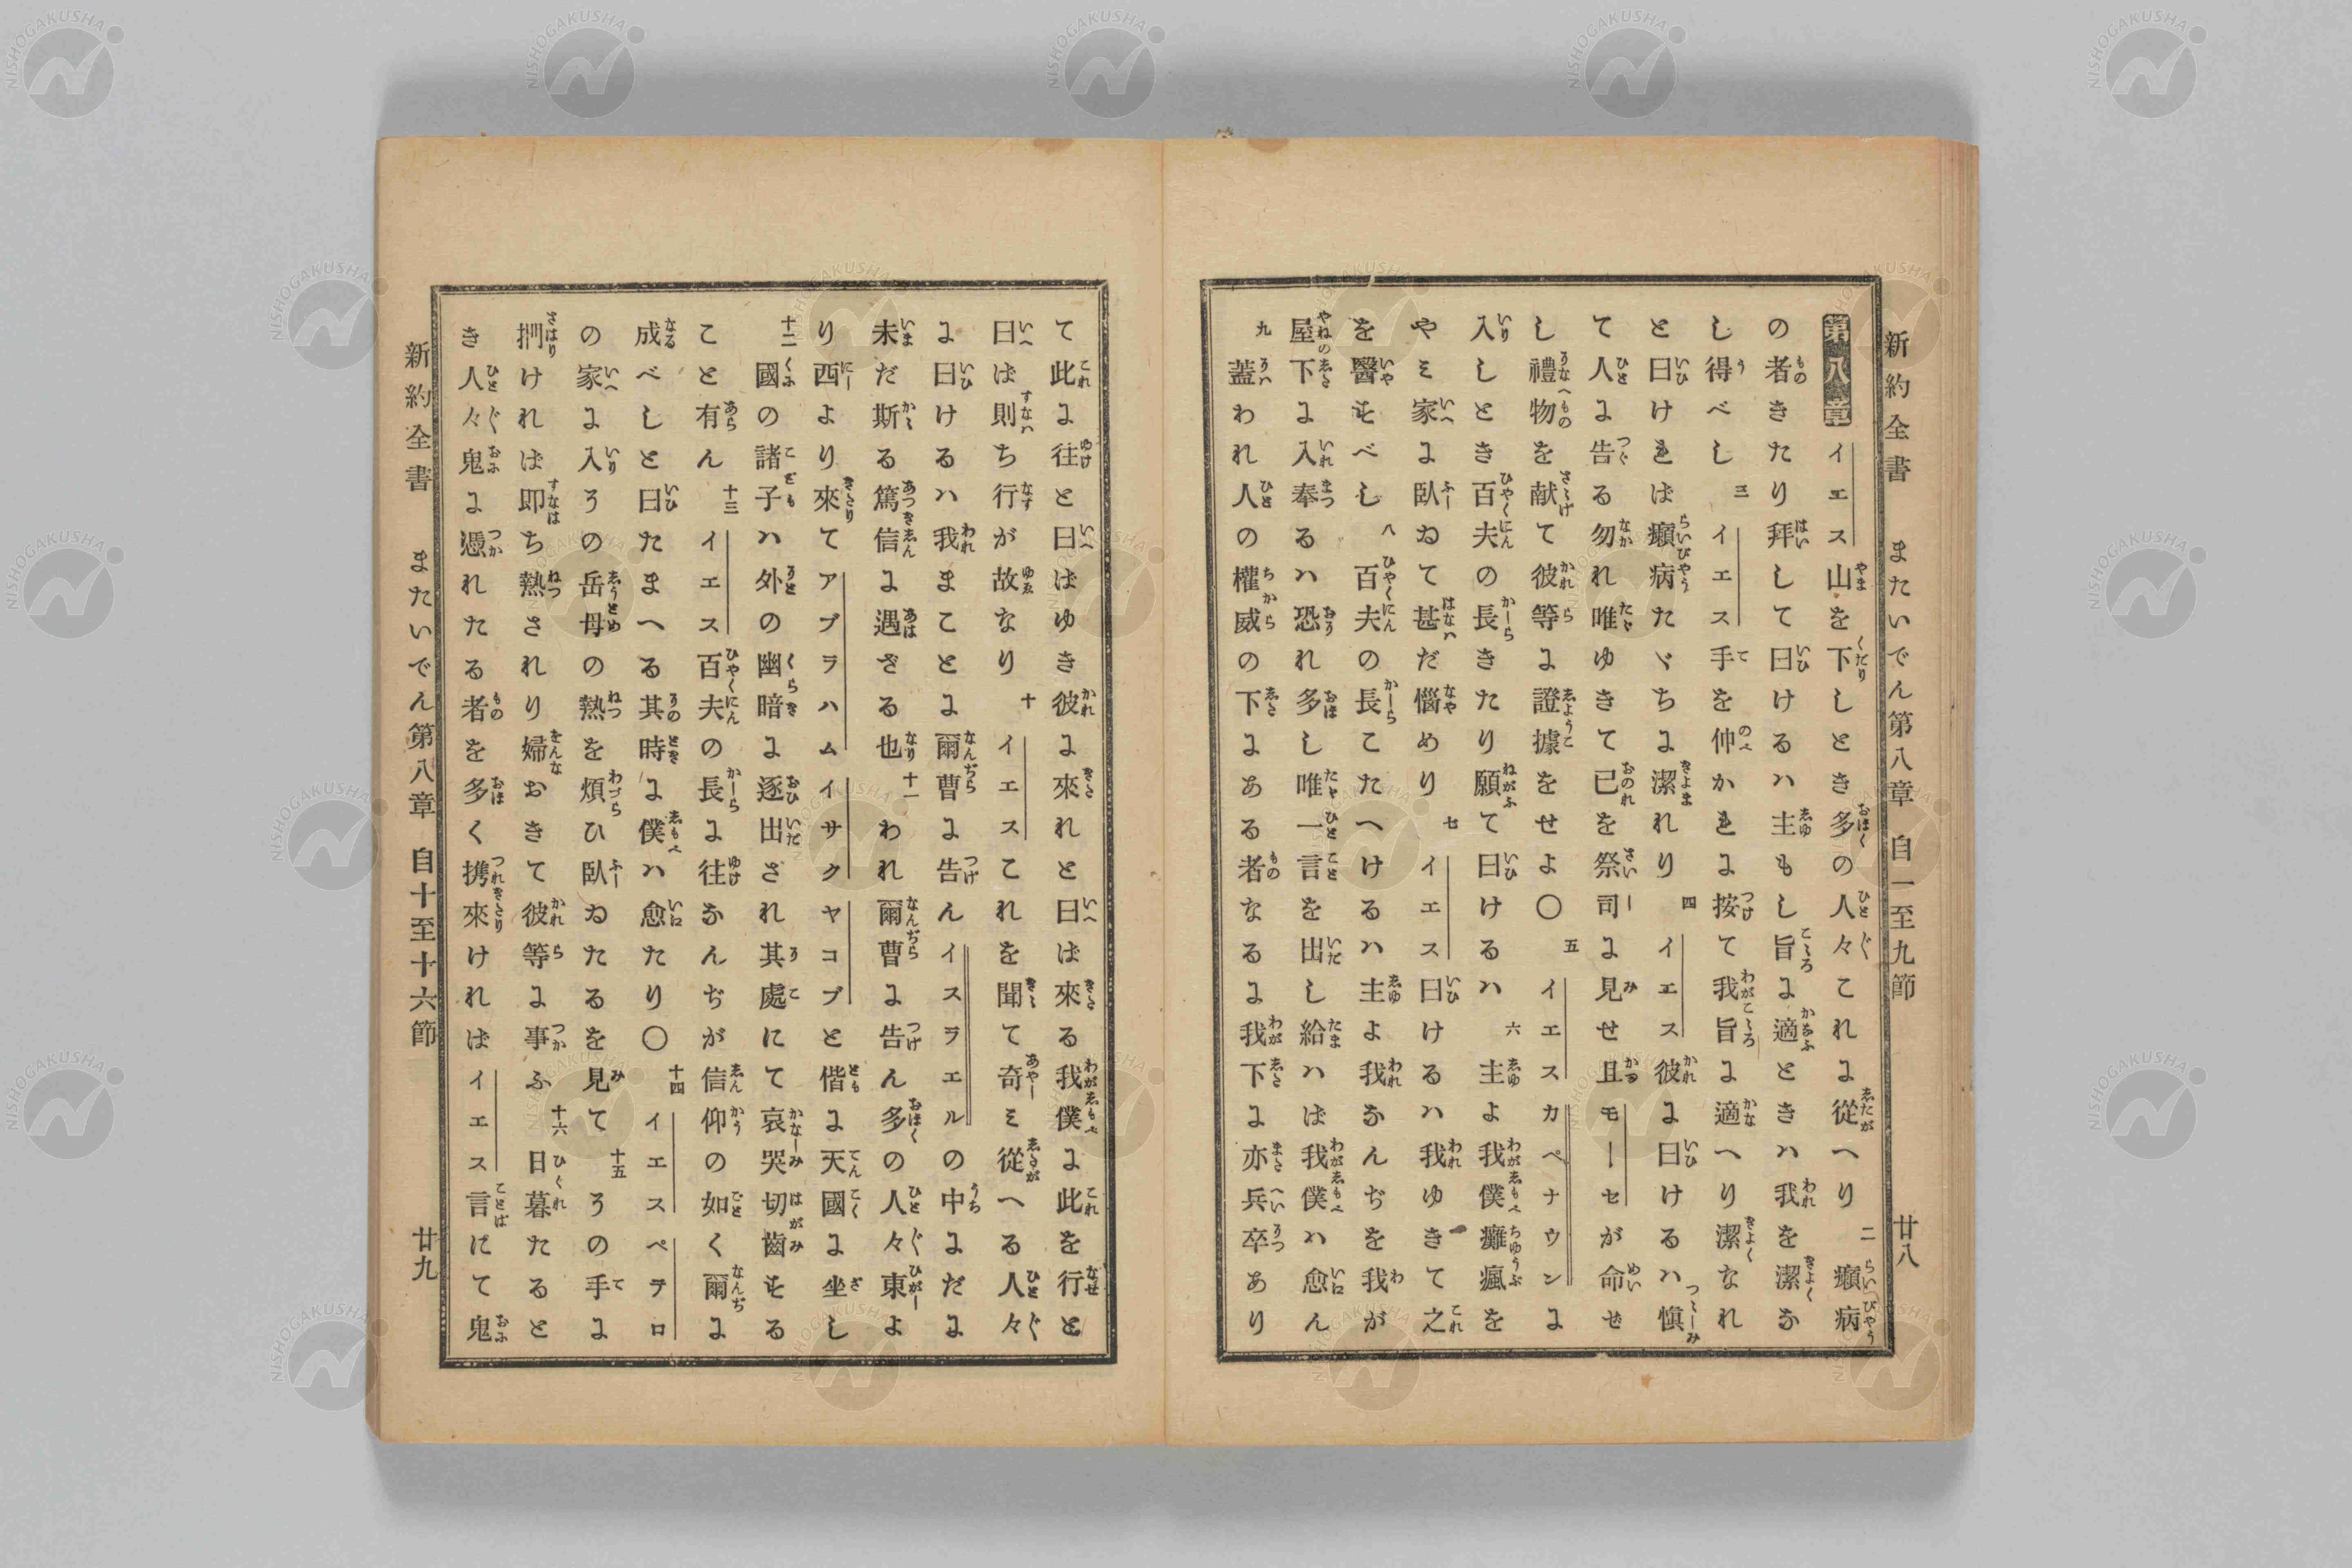 新約全書 またいでん第八章 自一至九節 廿八
第八章 イエス山を下しとき多の人々これに從へり 二 癩病
の者きたり拜して曰けるハ主もし旨に適ときハ我を潔な
し得べし 三 イエス手を伸かれに按て我旨に適へり潔なれ
と曰ければ癩病たゞちに潔れり 四 イエス彼に曰けるハ愼
て人に告る勿れ唯ゆきて已を祭司に見せ且モーセが命せ
し禮物を献て彼等に證據をせよ〇 五 イエスカペナウンに
入しとき百夫の長きたり願て曰けるハ 六 主よ我僕癱瘋を
やミ家に臥ゐて甚だ惱めり 七 イエス曰けるハ我ゆきて之
を醫すべし 八 百夫の長こたへけるハ主よ我なんぢを我が
屋下に入奉るハ恐れ多し唯一言を出し給ハば我僕ハ愈ん
九 蓋われ人の權威の下にある者なるに我下に亦兵卒あり
て此に往と曰ばゆき彼に來れと曰ば來る我僕に此を行と
曰ば則ち行が故なり 十 イエスこれを聞て奇ミ從へる人々
に曰けるハ我まことに爾曹に告んイスラエルの中にだに
未だ斯る篤信に遇ざる也 十一 われ爾曹に告ん多の人々東よ
り西より來てアブラハムイサクヤコブと偕に天國に坐し
十二 國の諸子ハ外の幽暗に逐出され其處にて哀哭切齒する
こと有ん 十三 イエス百夫の長に往なんぢが信仰の如く爾に
成べしと曰たまへる其時に僕ハ愈たり〇 十四 イエスペテロ
の家に入その岳母の熱を煩ひ臥ゐたるを見て 十五 その手に
捫ければ即ち熱され婦おきて彼等に事ふ 十六 日暮たると
き人々鬼に憑れたる者を多く携來ければイエス言にて鬼
新約全書 またいでん第八章 自十至十六節 廿九
NISHOGAKUSHA